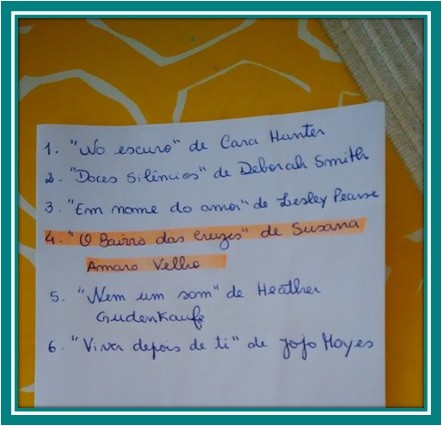 1. "No escuro" de Cara Hunter
2. "Doces Silêncios" de Deborah Smith
3. "Em nome do amor" de Lesley Pearse
4. "O Bairro das Cruzes" de Susana
Amaro Velho
5. "Nem um som" de Heather
Gudenkaufe
6. "Viver depois de ti" de Jojo Moyes